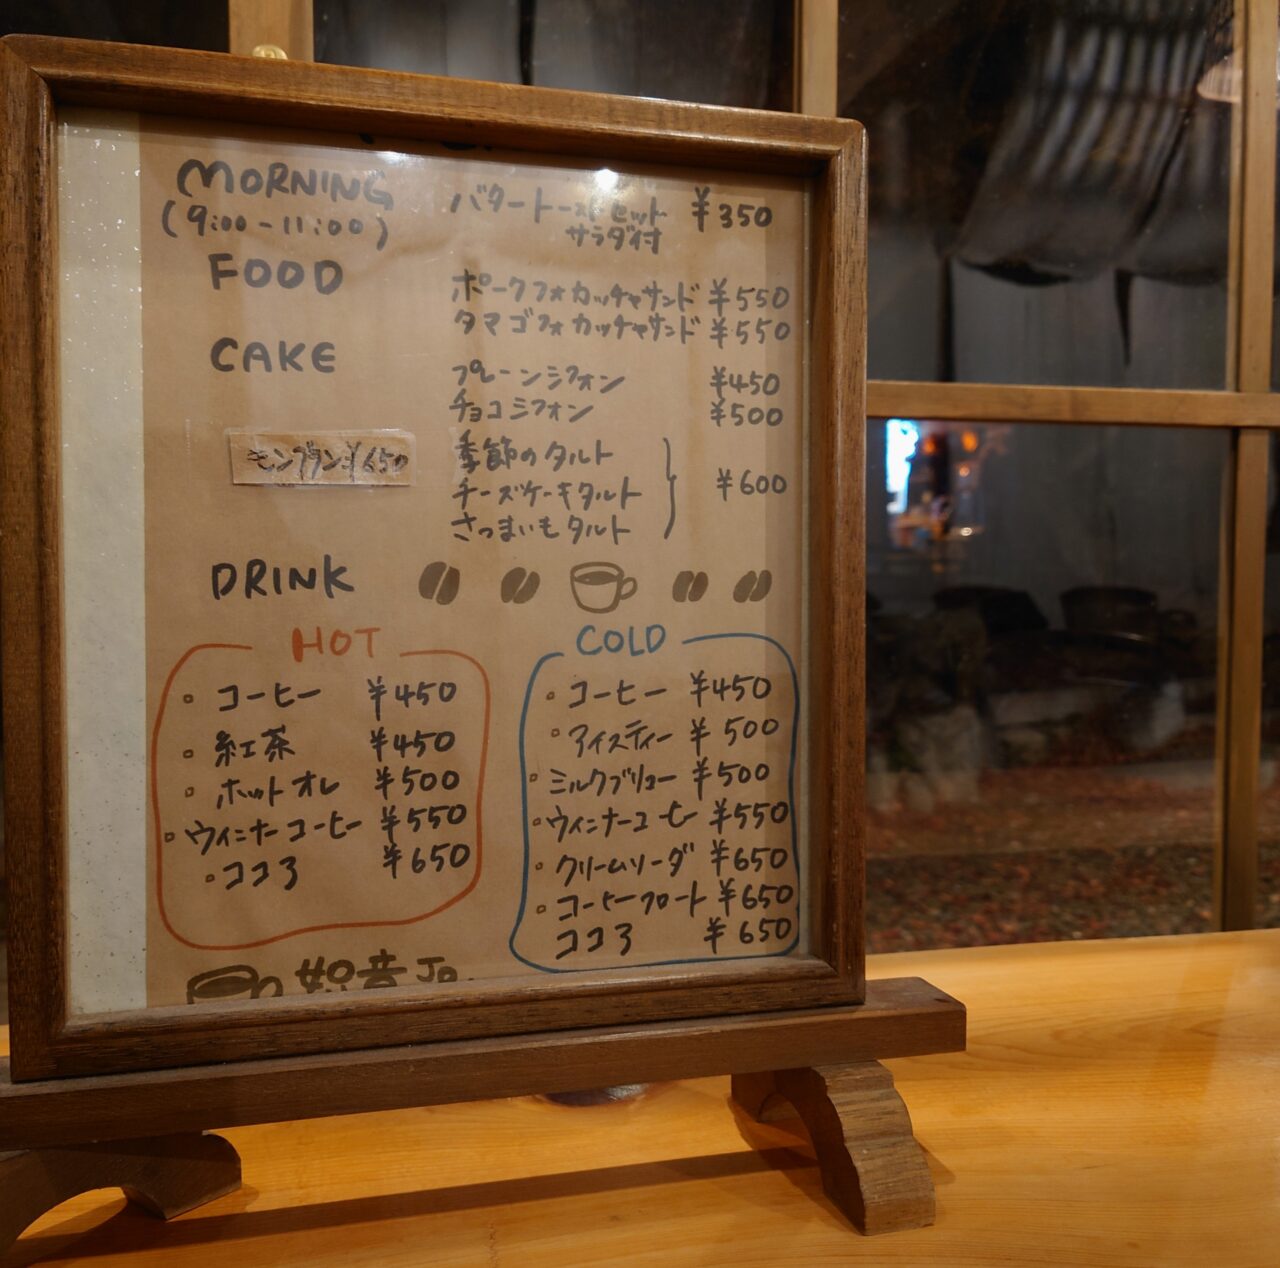 MORNING
(9:00-11:00)
バタートーストセット ¥350
サラダ付
FOOD
ポークフォカッチャサンド ¥550
タマゴフォカッチャサンド ¥550
CAKE
プレーンシフォン ¥450
チョコシフォン ¥500
モンブラン ¥650
季節のタルト
チーズケーキタルト ¥600
さつまいもタルト
DRINK
HOT
コーヒー ¥450
紅茶 ¥450
ホットオレ ¥500
ウィンナーコーヒー ¥550
ココア ¥650
COLD
コーヒー ¥450
アイスティー ¥500
ミルクブリュー ¥500
ウィンナーコーヒー ¥550
クリームソーダ ¥650
コーヒーフロート ¥650
ココア ¥650